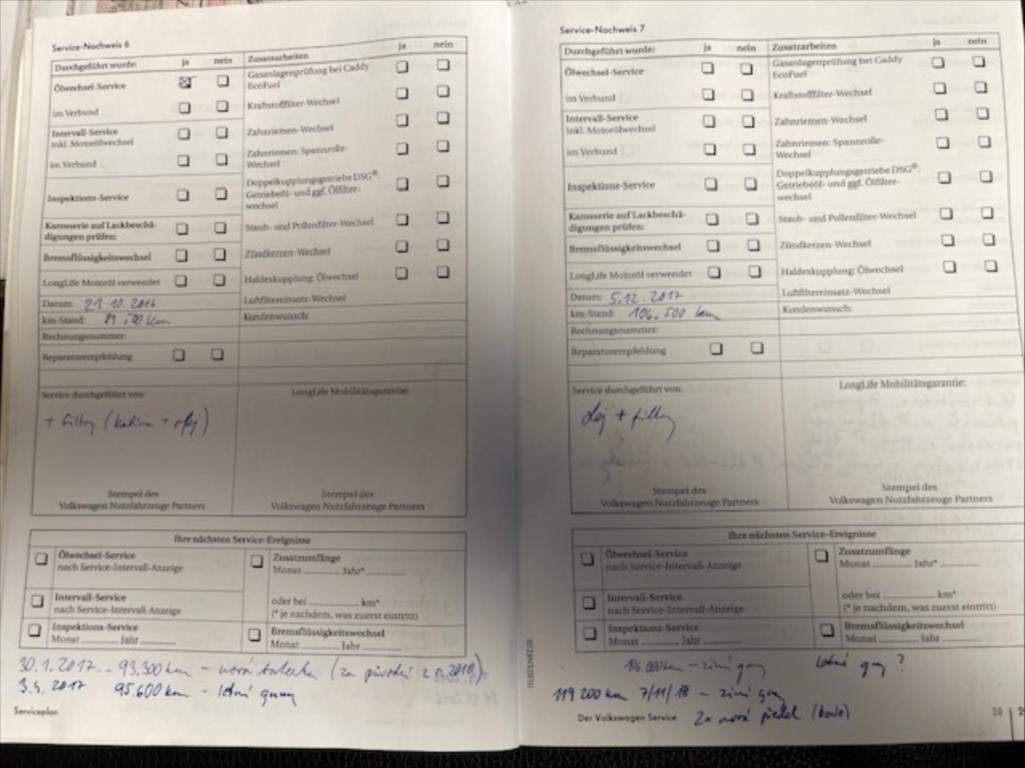 Service-Nachweis 6
Durchgeführt wurde: ja nein Zusatzarbeiten ja nein
Ölwechsel-Service
Gasanlagenprüfung bei Caddy
EcoFuel
im Verbund
Kraftstofffilter-Wechsel
Intervall-Service
inkl. Motorölwechsel
Zahnriemen-Wechsel
im Verbund
Zahnriemen: Spannrolle-
Wechsel
Inspektions-Service
Doppelkupplungsgetriebe DSG®:
Getriebeöl- und ggf. Ölfilter-
wechsel
Karosserie auf Lackbeschä-
digungen prüfen:
Staub- und Pollenfilter-Wechsel
Bremsflüssigkeitswechsel
Zündkerzen-Wechsel
LongLife Motoröl verwendet
Haldeskupplung: Ölwechsel
Datum: 21.10.2016
Luftfiltereinsatz-Wechsel
km-Stand: km
Kundenwunsch:
Rechnungsnummer:
Reparaturempfehlung
Service durchgeführt von:
LongLife Mobilitätsgarantie:
+ filtry (kabina + olej)
Stempel des
Volkswagen Nutzfahrzeuge Partners
Stempel des
Volkswagen Nutzfahrzeuge Partners
Ihre nächsten Service-Ereignisse
Ölwechsel-Service
nach Service-Intervall-Anzeige
Zusatzumfänge
Monat Jahr*
Intervall-Service
nach Service-Intervall-Anzeige
oder bei km*
(* je nachdem, was zuerst eintritt)
Inspektions-Service
Monat Jahr
Bremsflüssigkeitswechsel
Monat Jahr
30.1.2017 93.300 km - nová (za původní z
2017 95.600 km - letní gumy
Serviceplan
Service-Nachweis 7
Durchgeführt wurde: ja nein Zusatzarbeiten ja nein
Ölwechsel-Service
Gasanlagenprüfung bei Caddy
EcoFuel
im Verbund
Kraftstofffilter-Wechsel
Intervall-Service
inkl. Motorölwechsel
Zahnriemen-Wechsel
im Verbund
Zahnriemen: Spannrolle-
Wechsel
Inspektions-Service
Doppelkupplungsgetriebe DSG®:
Getriebeöl- und ggf. Ölfilter-
wechsel
Karosserie auf Lackbeschä-
digungen prüfen:
Staub- und Pollenfilter-Wechsel
Bremsflüssigkeitswechsel
Zündkerzen-Wechsel
LongLife Motoröl verwendet
Haldeskupplung: Ölwechsel
Datum: 5.12.2017
Luftfiltereinsatz-Wechsel
km-Stand: 106.500 km
Kundenwunsch:
Rechnungsnummer:
Reparaturempfehlung
Service durchgeführt von:
LongLife Mobilitätsgarantie:
olej + filtry
Stempel des
Volkswagen Nutzfahrzeuge Partners
Stempel des
Volkswagen Nutzfahrzeuge Partners
Ihre nächsten Service-Ereignisse
Ölwechsel-Service
nach Service-Intervall-Anzeige
Zusatzumfänge
Monat Jahr*
Intervall-Service
nach Service-Intervall-Anzeige
oder bei km*
(* je nachdem, was zuerst eintritt)
Inspektions-Service
Monat Jahr
Bremsflüssigkeitswechsel
Monat Jahr
km - zimní gumy letní gumy ?
119 200 km 7/11/18 - zimní gumy
Der Volkswagen Service 2x nová